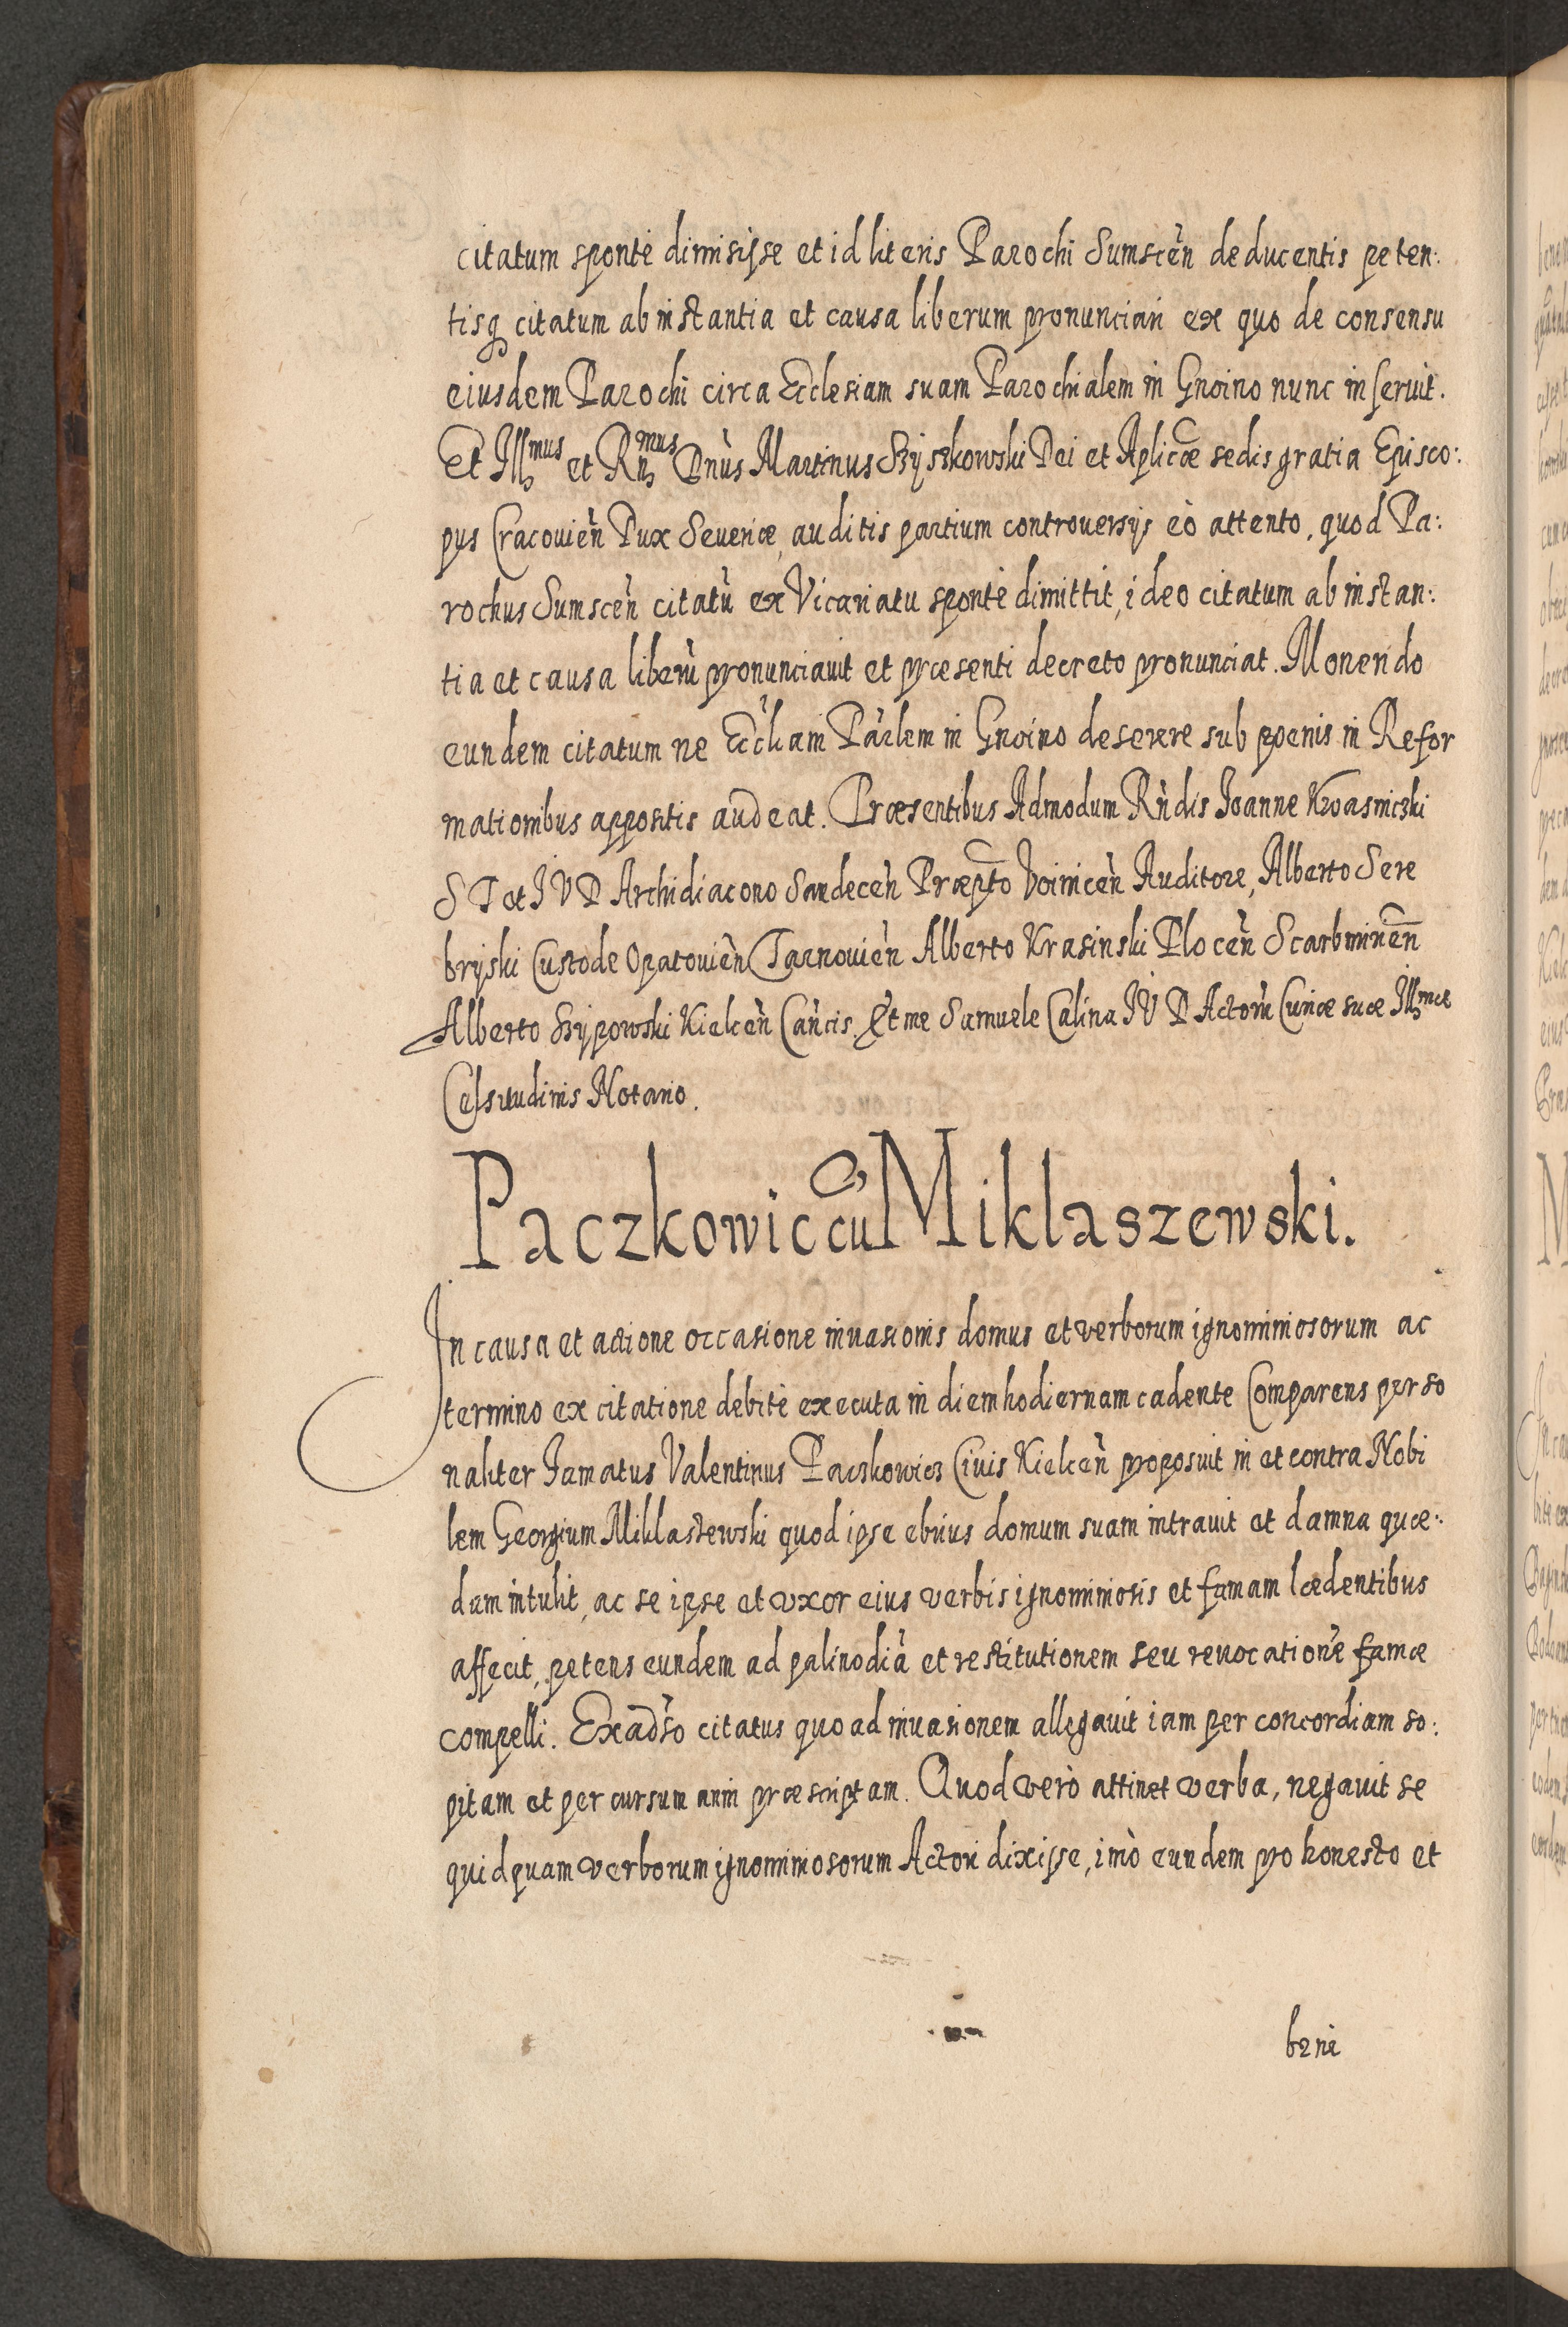 citatum sponte dimisisse et id literis Parochi Sumscen̄ deducentis peten:
tisq citatum ab instantia et causa liberum pronunciari ex quo de consensu
eiusdem Parochi circa Ecclesiam suam Parochialem in Gnoino nunc inservit.
Et Illmus et Rnmus Dnus Martinus Szyszkowski Dei et Aplicæ sedis gratia Episco:
pus Cracovien̄ Dux Severiæ, auditis partium controversijs eò attento, quod Pa:
rochus Sumscen̄ citatū ex Vicariatu sponte dimittit, ideo citatum ab instan:
tia et causa liberū pronunciavit et præsenti decreto pronunciat. Monendo
eundem citatum ne Eccliam Parlem in Gnoino deserere sub poenis in Refor
mationibus appositis audeat. Præsentibus Admodum Rndis Joanne Kwasniczki
S T et J V D Archidiacono Sandecen̄ Præpto Voinicen̄ Auditore, Alberto Sere
bryski Custode Opatovien̄ Tarnovien̄ Alberto Krasinski Plocen̄ Scarbmirien̄
Alberto Szypowski Kielcen̄ Cancis. Et me Samuele Calina J V D Actorū Curiæ suæ Illmæ
Celsitudinis Notario.
Paczkowic cū Miklaszewski.
In causa et actione occasione invasionis domus et verborum ignominiosorum ac
termino ex citatione debitè executa in diem hodiernam cadente Comparens perso
naliter Famatus Valentinus Paczkowicz Civis Kielcen̄ proposuit in et contra Nobi
lem Georgium Miklaszewski quod ipse ebrius domum suam intravit et damna quæ:
dam intulit, ac se ipse et vxor eius verbis ignominiosis et famam lædentibus
affecit, petens eundem ad palinodiā et restitutionem seu revocationē famæ
compelli. Ex adūso citatus quoad invasionem allegavit iam per concordiam so:
pitam et per cursum anni præscriptam. Quod verò attinet verba, negavit se
quidquam verborum ignominiosorum Actori dixisse, imò eundem pro honesto et
bene